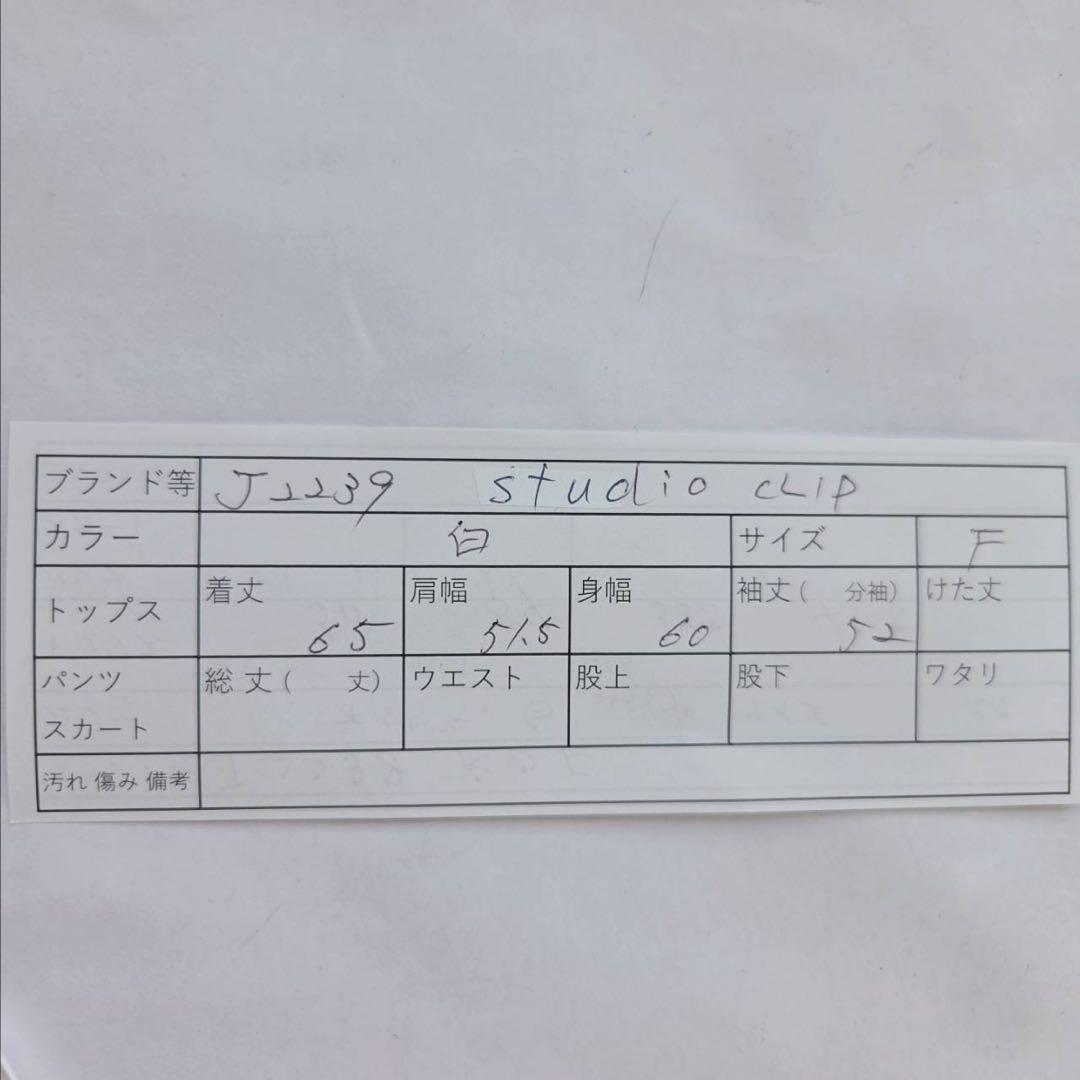 ブランド等 J2239 studio CLIP
カラー 白 サイズ F
トップス 着丈 65 肩幅 51.5 身幅 60 袖丈( 分袖) 52 けた丈
パンツ スカート 総丈( 丈) ウエスト 股上 股下 ワタリ
汚れ 傷み 備考